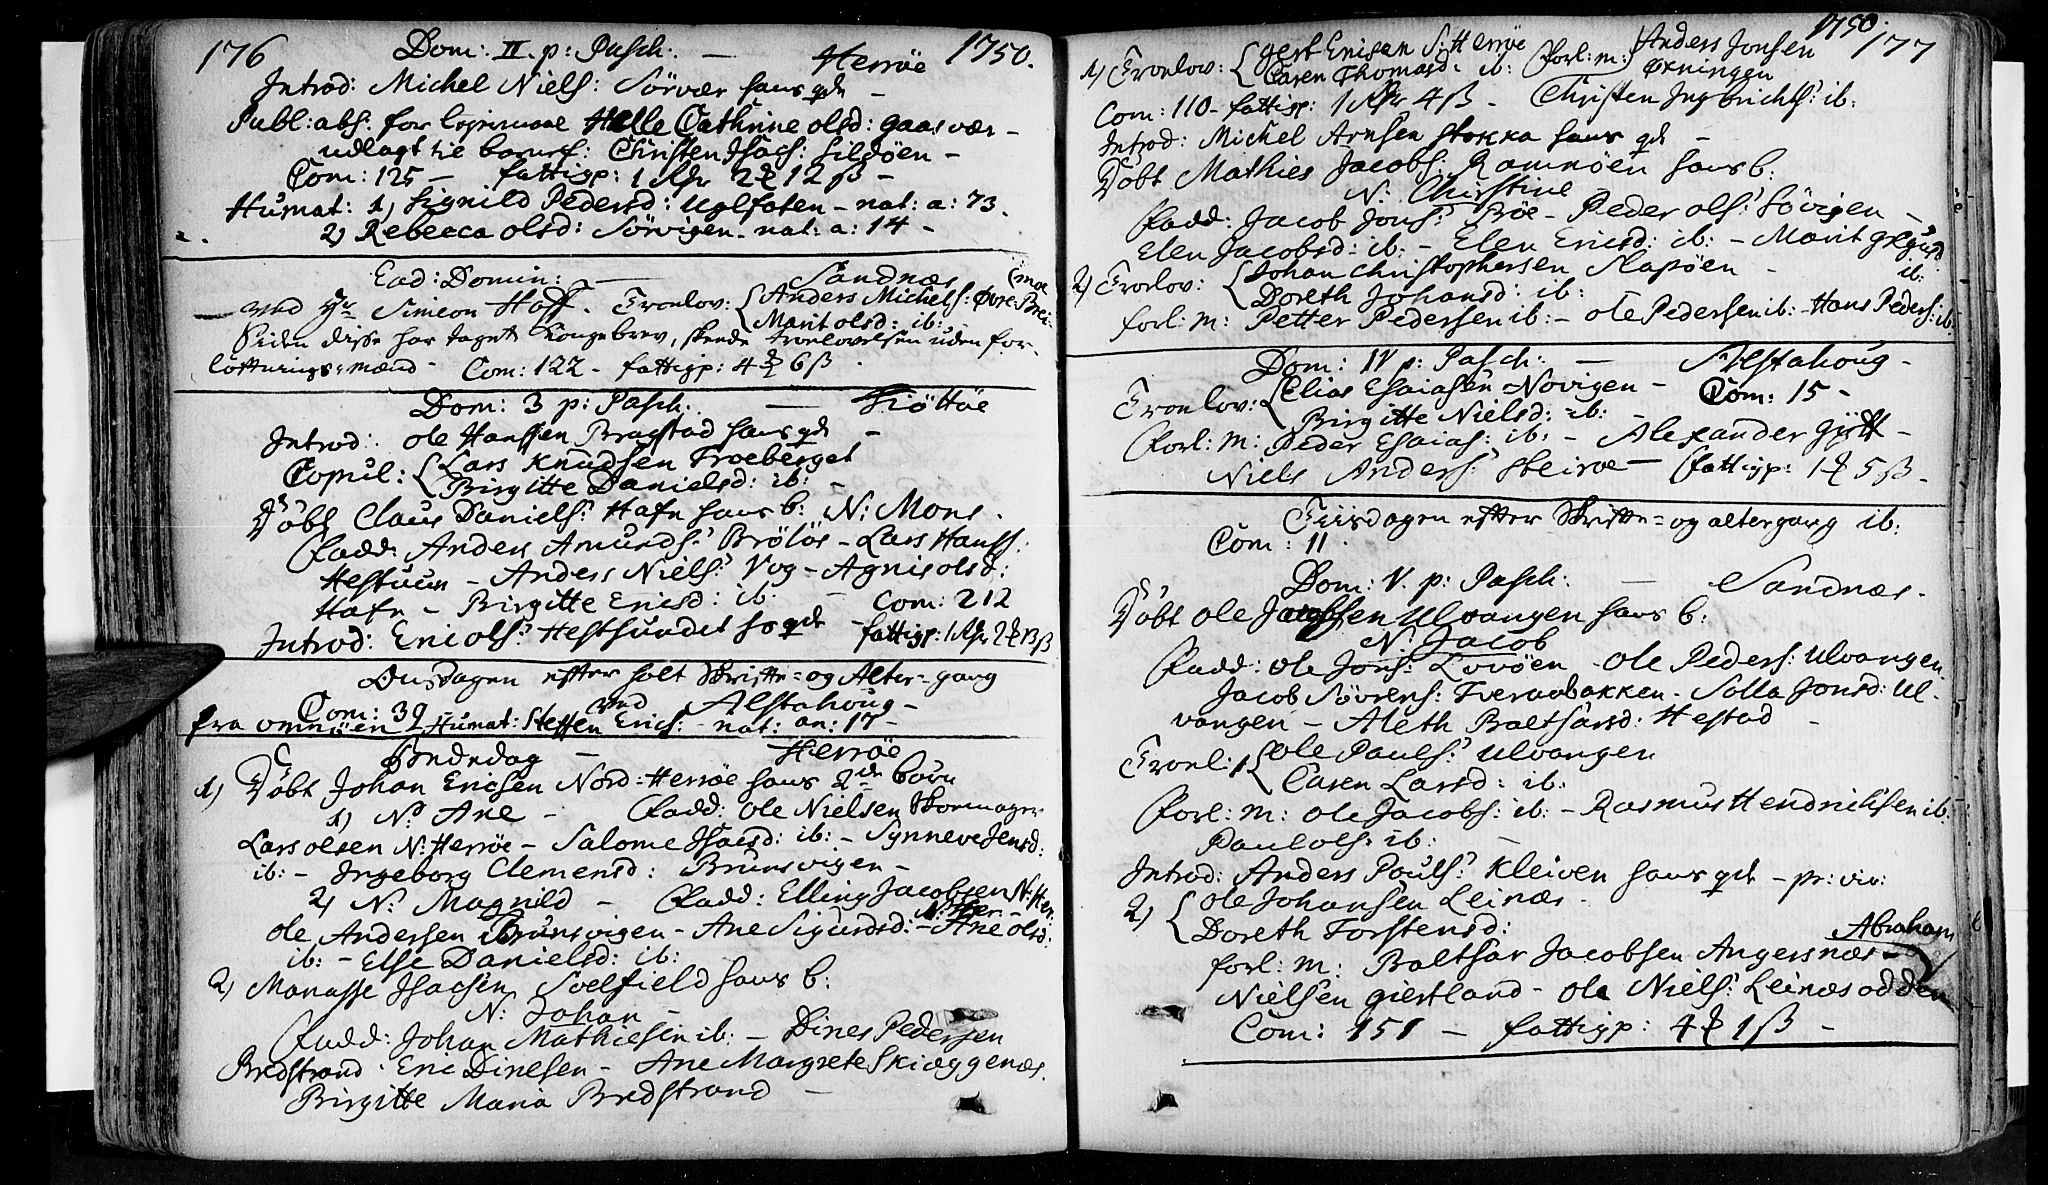 176 Dom: II. p: Pasch: — Herrøe 1750.
Introd: Michel Niels: Sörvær hans qde —
Publ: abs: for lejermaal Helle Cathrine olsd: gaasvær —
udlagt til barnef: Christen Isacs: Sildöen —
Com: 125 — fattigp: 1 Rdr 2 12 ß —
Humat: 1) Signild Pedersd: Uglfoten — nat: a: 73.
2) Rebecca olsd: Sörvigen — nat: a: 14 —
Ead: Domin: — Sandnæs
ved Hr Simeon Hoff. Troelov: Anders Michels: Øvre-
Marit olsd: ib: —
Siden disse har taget Kongebrev, skeede troelovelsen uden for-
löftnings-mænd — Com: 122 — fattigp: 4 6 ß
Dom: 3 p: Pasch: — Tiøttøe
Introd: ole Hanssen Bragstad hans qde —
Copul: Lars Knudsen Troeberget
Birgitte Danielsd: ib: —
Döbt Claus Daniels: Hafn hans b: N: Mons.
Fadd: Anders Amunds: Brölös — Lars Hanss:
Hestuun — Anders Niels: Vog — Agnis olsd:
Hafn — Birgitte Ericsd: ib: — Com: 212
Introd: Eric ols: Hestsundet hs qde — fattigp: 1 Rdr 2 13 ß
Onsdagen efter holt Skrifte- og Alter-gang
ved Alstahoug —
Com: 39
fra omnöen Humat: Steffen Erics: — nat: an: 17 —
Bededag — Herrøe
1) Döbt Johan Ericsen Nord-Herröe hans 2de börn
1) N: Ane — Fadd: ole Nielsen Skoemager
Lars olsen N: Herröe — Salome Isacsd: ib: — Synneve Jensd:
ib: — Ingeborg Clemensd: Brunsvigen —
2) N: Magnild — Fadd: Elling Jacobsen N: Her:
ole Andersen Brunsvigen — Ane Sigurdsd: N: Her — Ane olsd:
ib: — Else Danielsd: ib:
2) Manasse Isacsen Soelfield hans b:
N: Johan —
Fadd: Johan Mathiesen ib: — Dines Pedersen
Bredstrand. Eric Dinesen — Ane Margrete Skiæggenæs.
Birgitte Maria Bredstrand —
1750. 177
1) Troelov: Gert Ericsen S: Herröe
Caren Thomasd: ib: Forl: m: Anders Jonsen
Øxningen
Com: 110 — fattigp: 1 Rdr 4 ß — Christen Ingbrichts: ib:
Introd: Michel Arnsen Stokka hans qde —
Döbt Mathies Jacobs: Ramnöen hans b:
N: Christine
Fadd: Jacob Jons: Bröe — Peder ols: Sövigen —
Elen Jacobsd: ib: — Elen Ericsd: ib: — Marit
ib:
2) Troelov: Johan Christophersen Slapöen —
Doreth Johansd: ib:
forl: m: Petter Pedersen ib: — ole Pedersen ib: — Hans Peders: ib:
Dom: IV p: Pasch: — Alstahoug —
Troelov: Elias Esaiasen Novigen — Com: 15 —
Birgitte Nielsd: ib:
Forl: m: Peder Esaias: ib: — Alexander
Niels Anders: Skeiroe — fattigp: 1 5 ß —
Tiisdagen efter Skrifte- og altergang ib:
Com: 11.
Dom: V. p: Pasch: — Sandnæs —
Döbt ole Jacobsen Ulvangen hans b:
N: Jacob
Fadd: ole Jons: Lovöen — ole Peders: Ulvangen
Jacob Sörens: Tveraabakken — Solla Jonsd: Ul-
vangen — Aleth Baltsarsd: Hestad —
Troel: 1 ole Pauls: Ulvangen
Caren Larsd: ib:
Forl: m: ole Jacobs: ib: — Rasmus Hendrichsen ib:
Paul ols: ib: —
Introd: Anders Pouls: Kleiven hans qde — pr: vic:
2) ole Johansen Leinæs —
Doreth Torstensd:
forl: m: Baltsar Jacobsen Angersnæs — Abraham
Nielsen giestland — ole Niels: Leinæsodden
Com: 151 — fattigp: 4 1 ß —